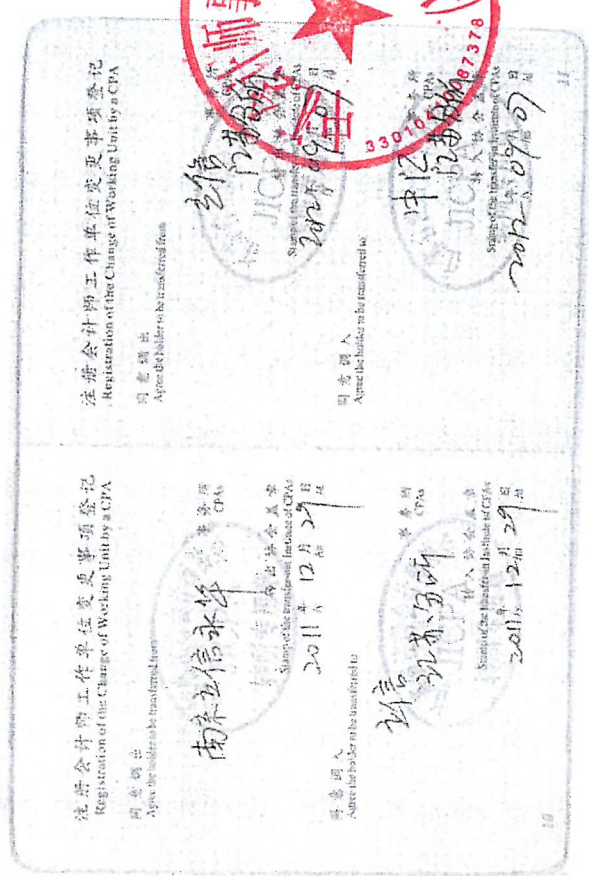 注册会计师工作单位变更事项登记
Registration of the Change of Working Unit by a CPA
同意调出
Agree the holder to be transferred from
南京立信永华 事务所
CPAs
转出协会盖章
Stamp of the transferor Institute of CPAs
2011年 12月 29日
同意调入
Agree the holder to be transferred to
立信
江苏分所 事务所
CPAs
转入协会盖章
Stamp of the transferee Institute of CPAs
2011年 12月 29日
10
注册会计师工作单位变更事项登记
Registration of the Change of Working Unit by a CPA
同意调出
Agree the holder to be transferred from
立信
江苏分所
事务所
CPAs
JICPA
Stamp of the transferor Institute of CPAs
2012年 09月 07日
同意调入
Agree the holder to be transferred to
江苏分所
事务所
CPAs
JICPA
转入协会盖章
Stamp of the transferee Institute of CPAs
2012 09 07
11